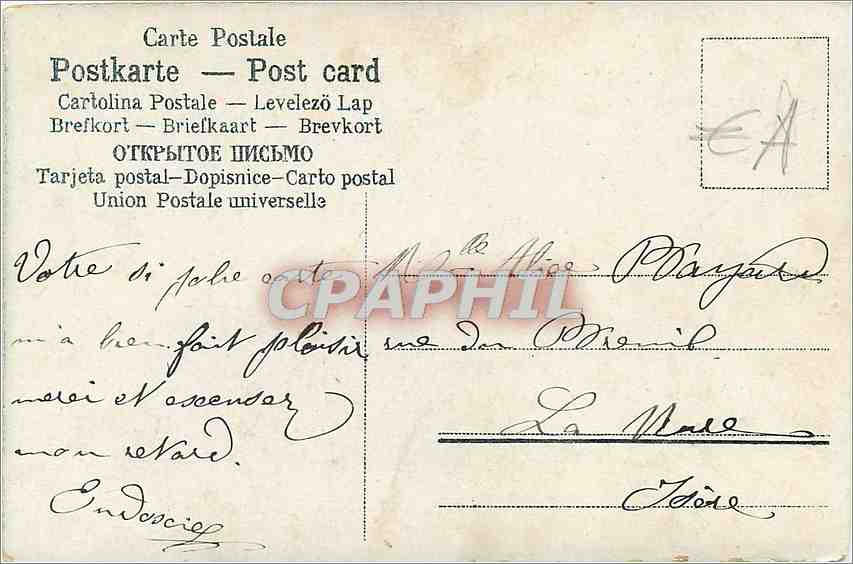 Carte Postale
Postkarte — Post card
Cartolina Postale — Levelező Lap
Brefkort — Briefkaart — Brevkort
ОТКРЫТОЕ ПИСЬМО
Tarjeta postal—Dopisnice—Carto postal
Union Postale universelle
€A
Votre si jolie carte
m'a bien fait plaisir
merci et excusez
mon retard.
Alice
rue du
La Mure
Isère
CPAPHIL